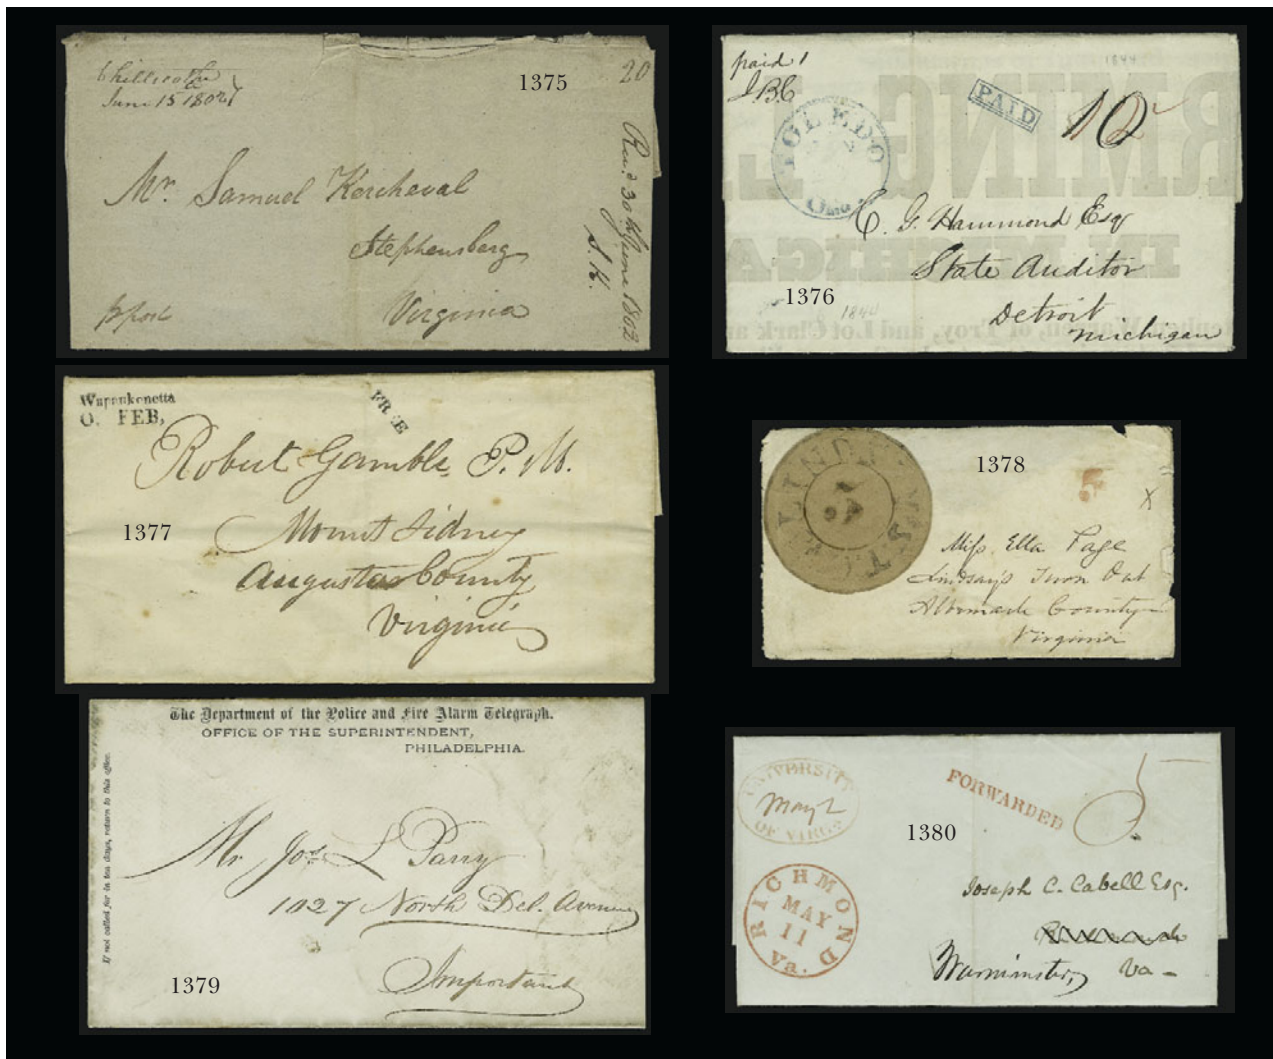 Chillicothe
June 15 1802
1375
20
Mr. Samuel Kercheval
Stephensburg
Virginia
p post
Recd. 30th June 1802
S.K.
paid 1
J.B.C
1844
PAID
10
TOLEDO
Ohio.
C. G. Hammond Esq
State Auditor
Detroit
Michigan
1376
1844
RMING L
IN MICHIGA
, of Troy, and Lot Clark
Wapaukonetta
O. FEB,
FREE
Robert Gamble P.M.
1377
Mount Sidney
Augusta County
Virginia
1378
5
X
Miss Ella Page
Lindsay's Turn Out
Albemarle County
Virginia
The Department of the Police and Fire Alarm Telegraph.
OFFICE OF THE SUPERINTENDENT,
PHILADELPHIA.
If not called for in ten days, return to this office.
Mr Jos. L Parry
1027 North Del. Avenue
Important
1379
UNIVERSITY
May 2
OF VIRGA
FORWARDED
5
1380
RICHMOND
MAY
11
Va.
Joseph C. Cabell Esq.
Warminster,
Va -